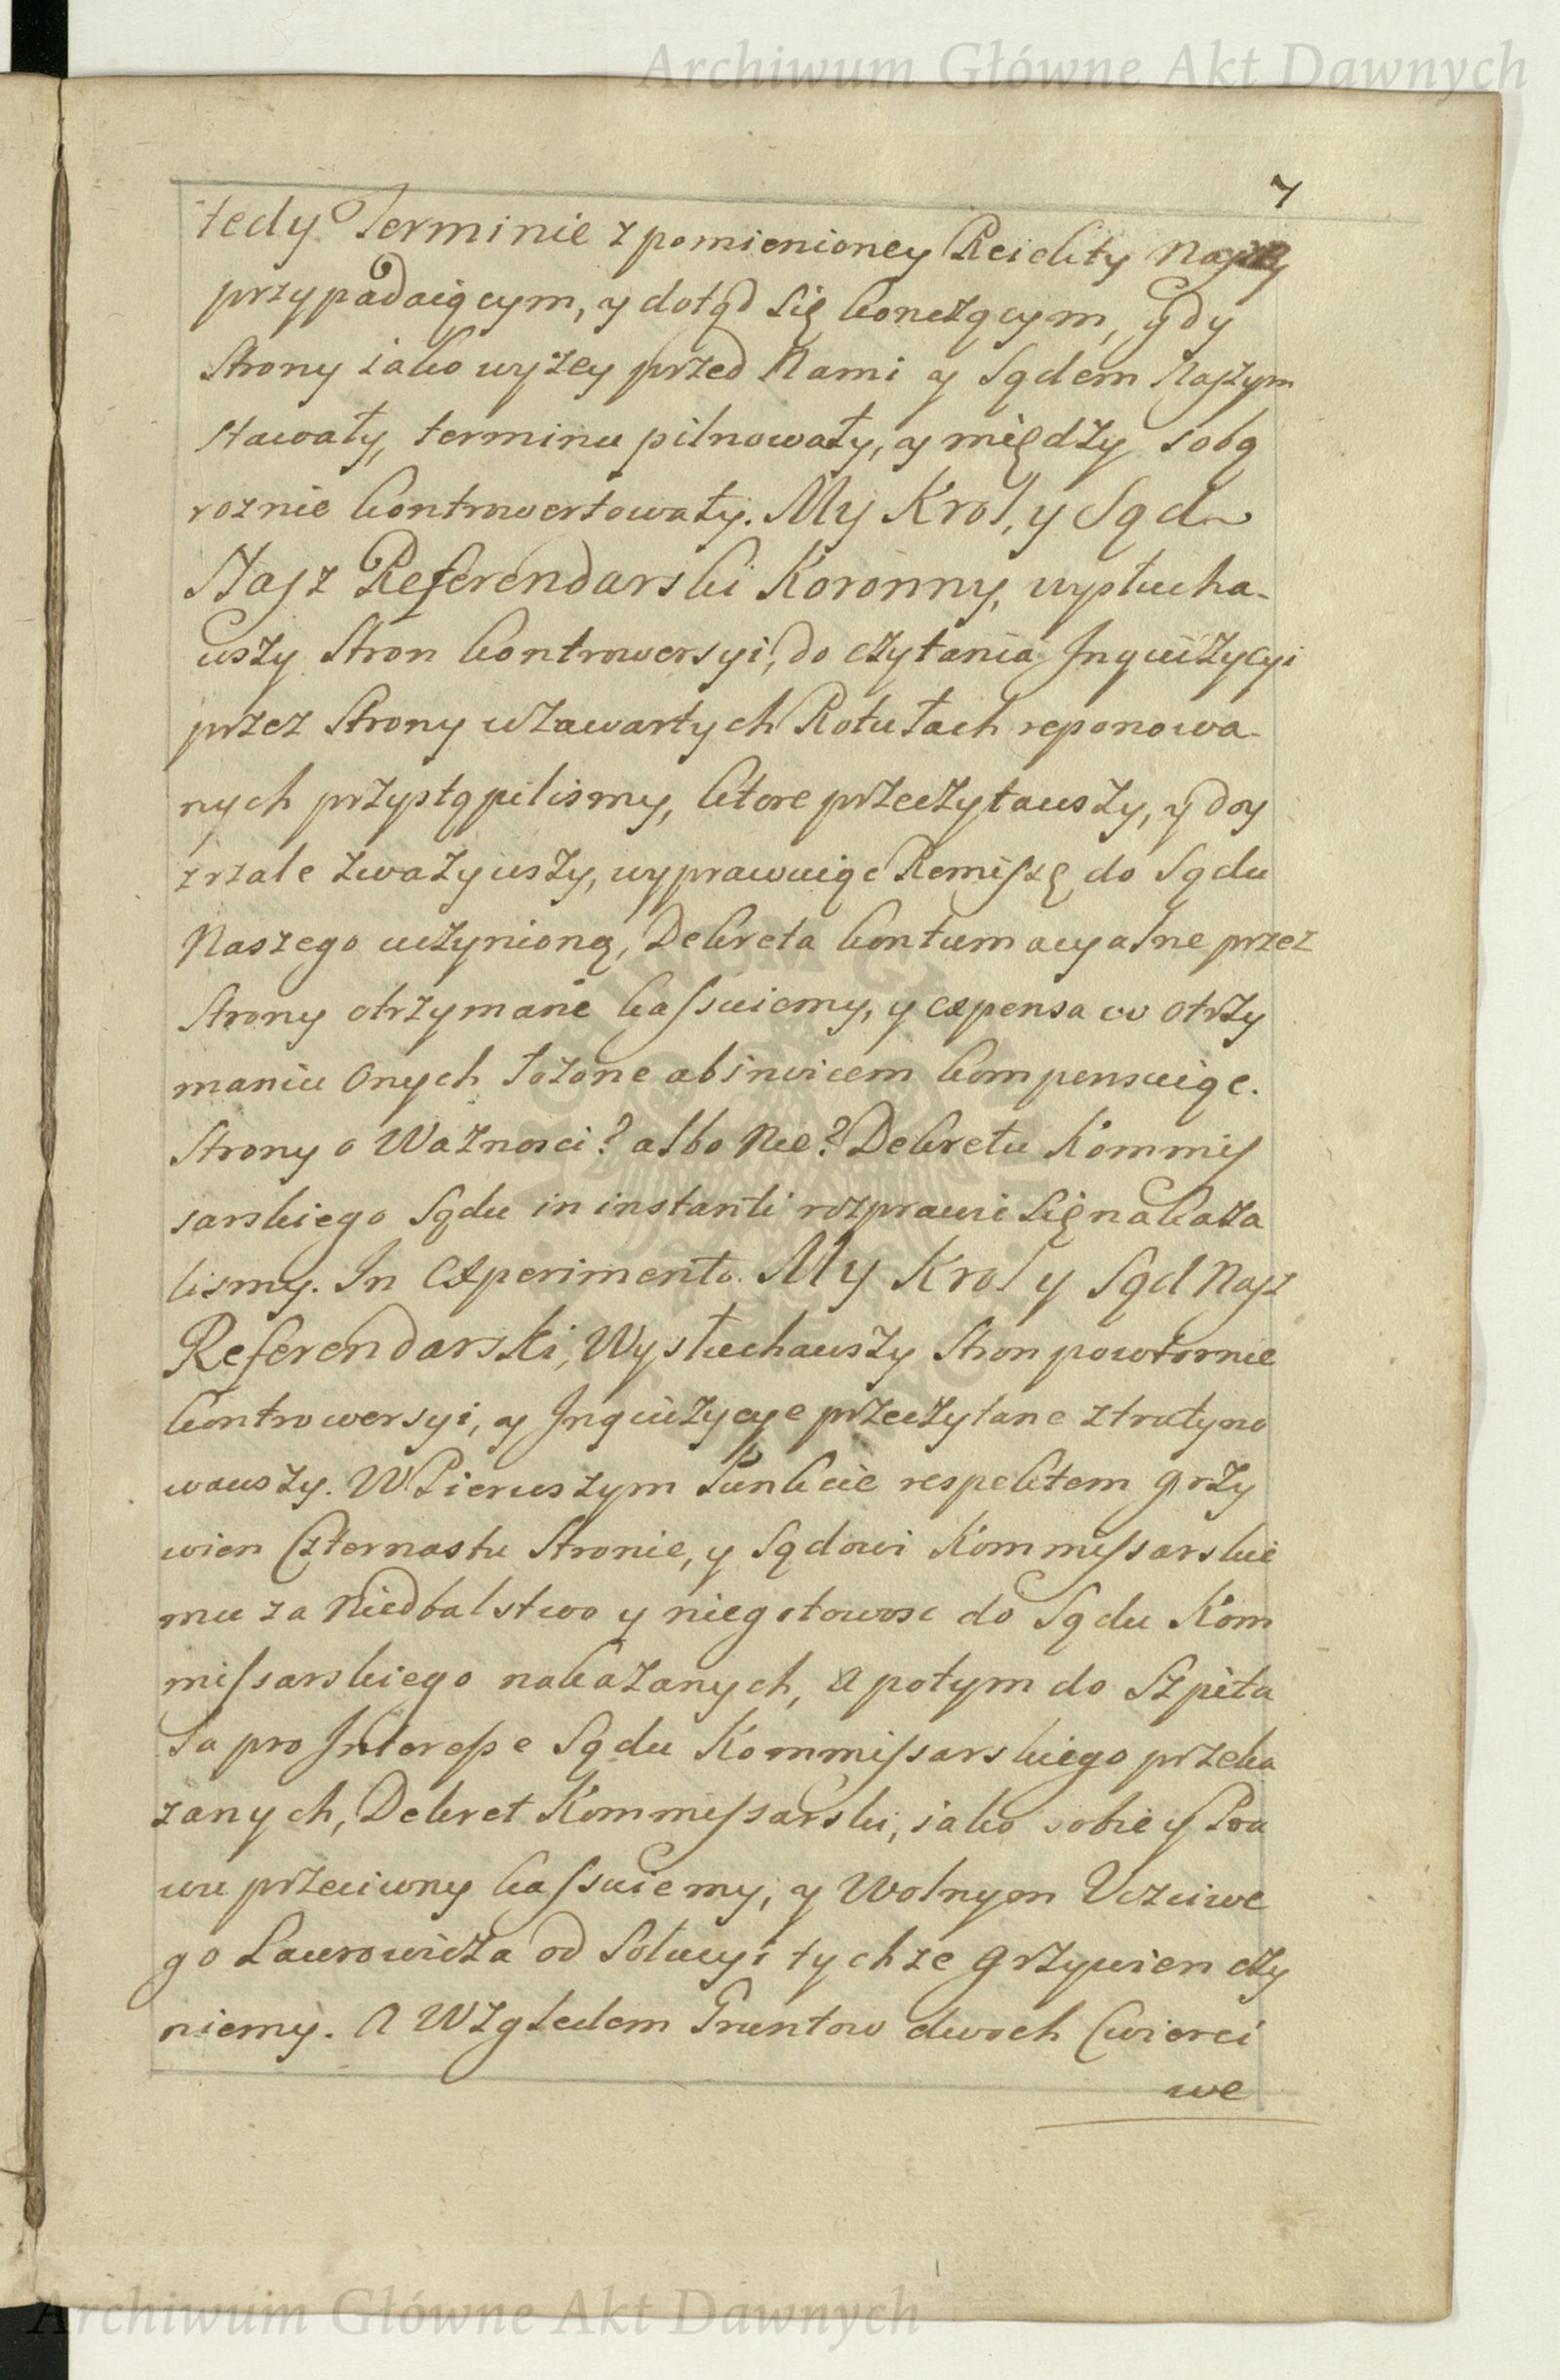 Archiwum Główne Akt Dawnych
7
tedy Terminie z pomienioney Reidity
przypadaiącym, y dotąd się konczącym, gdy
Strony iako wyżey przed Nami y Sądem Naszym
stawały, terminu pilnowały, y między sobą
roznie kontrowertowały. My Krol, y Sąd
Nasz Referendarski Koronny, wysłucha-
wszy Stron kontrowersyi, do czytania Inquizycyi
przez Strony w zawartych Rotułach reponowa-
nych przystąpilismy, ktore przeczytawszy, y doy
zrzale zważywszy, wyprawuiąc Remissę do Sądu
Naszego uczynioną, Dekreta kontumacyalne przez
Strony otrzymane kassuiemy, y expensa w otrzy
maniu Onych łożone abinvicem kompensuiąc.
Strony o Ważnosci? albo Nie? Dekretu Kommis
sarskiego Sądu in instanti rozprawić się nakaza
lismy. In Experimento. My Krol y Sąd Nasz
Referendarski, Wysłuchawszy Stron powtornie
kontrowersyi, y Inquizycye przeczytane ztrutyno
wawszy. W Pierwszym Punkcie respektem grzy
wien Czternastu Stronie, y Sądowi Kommissarskie
mu za Niedbalstwo y niegotowosc do Sądu Kom
missarskiego nakazanych, a potym do Szpita
la pro Interesse Sądu Kommissarskiego przeka
zanych, Dekret Kommissarski, iako sobie y Pra
wu przeciwny kassuiemy, y Wolnym Uczciwe
go Lawrowicza od Solucyi tychze grzywien czy
niemy. A Względem Gruntow dwoch Cwierci
we
Archiwum Główne Akt Dawnych